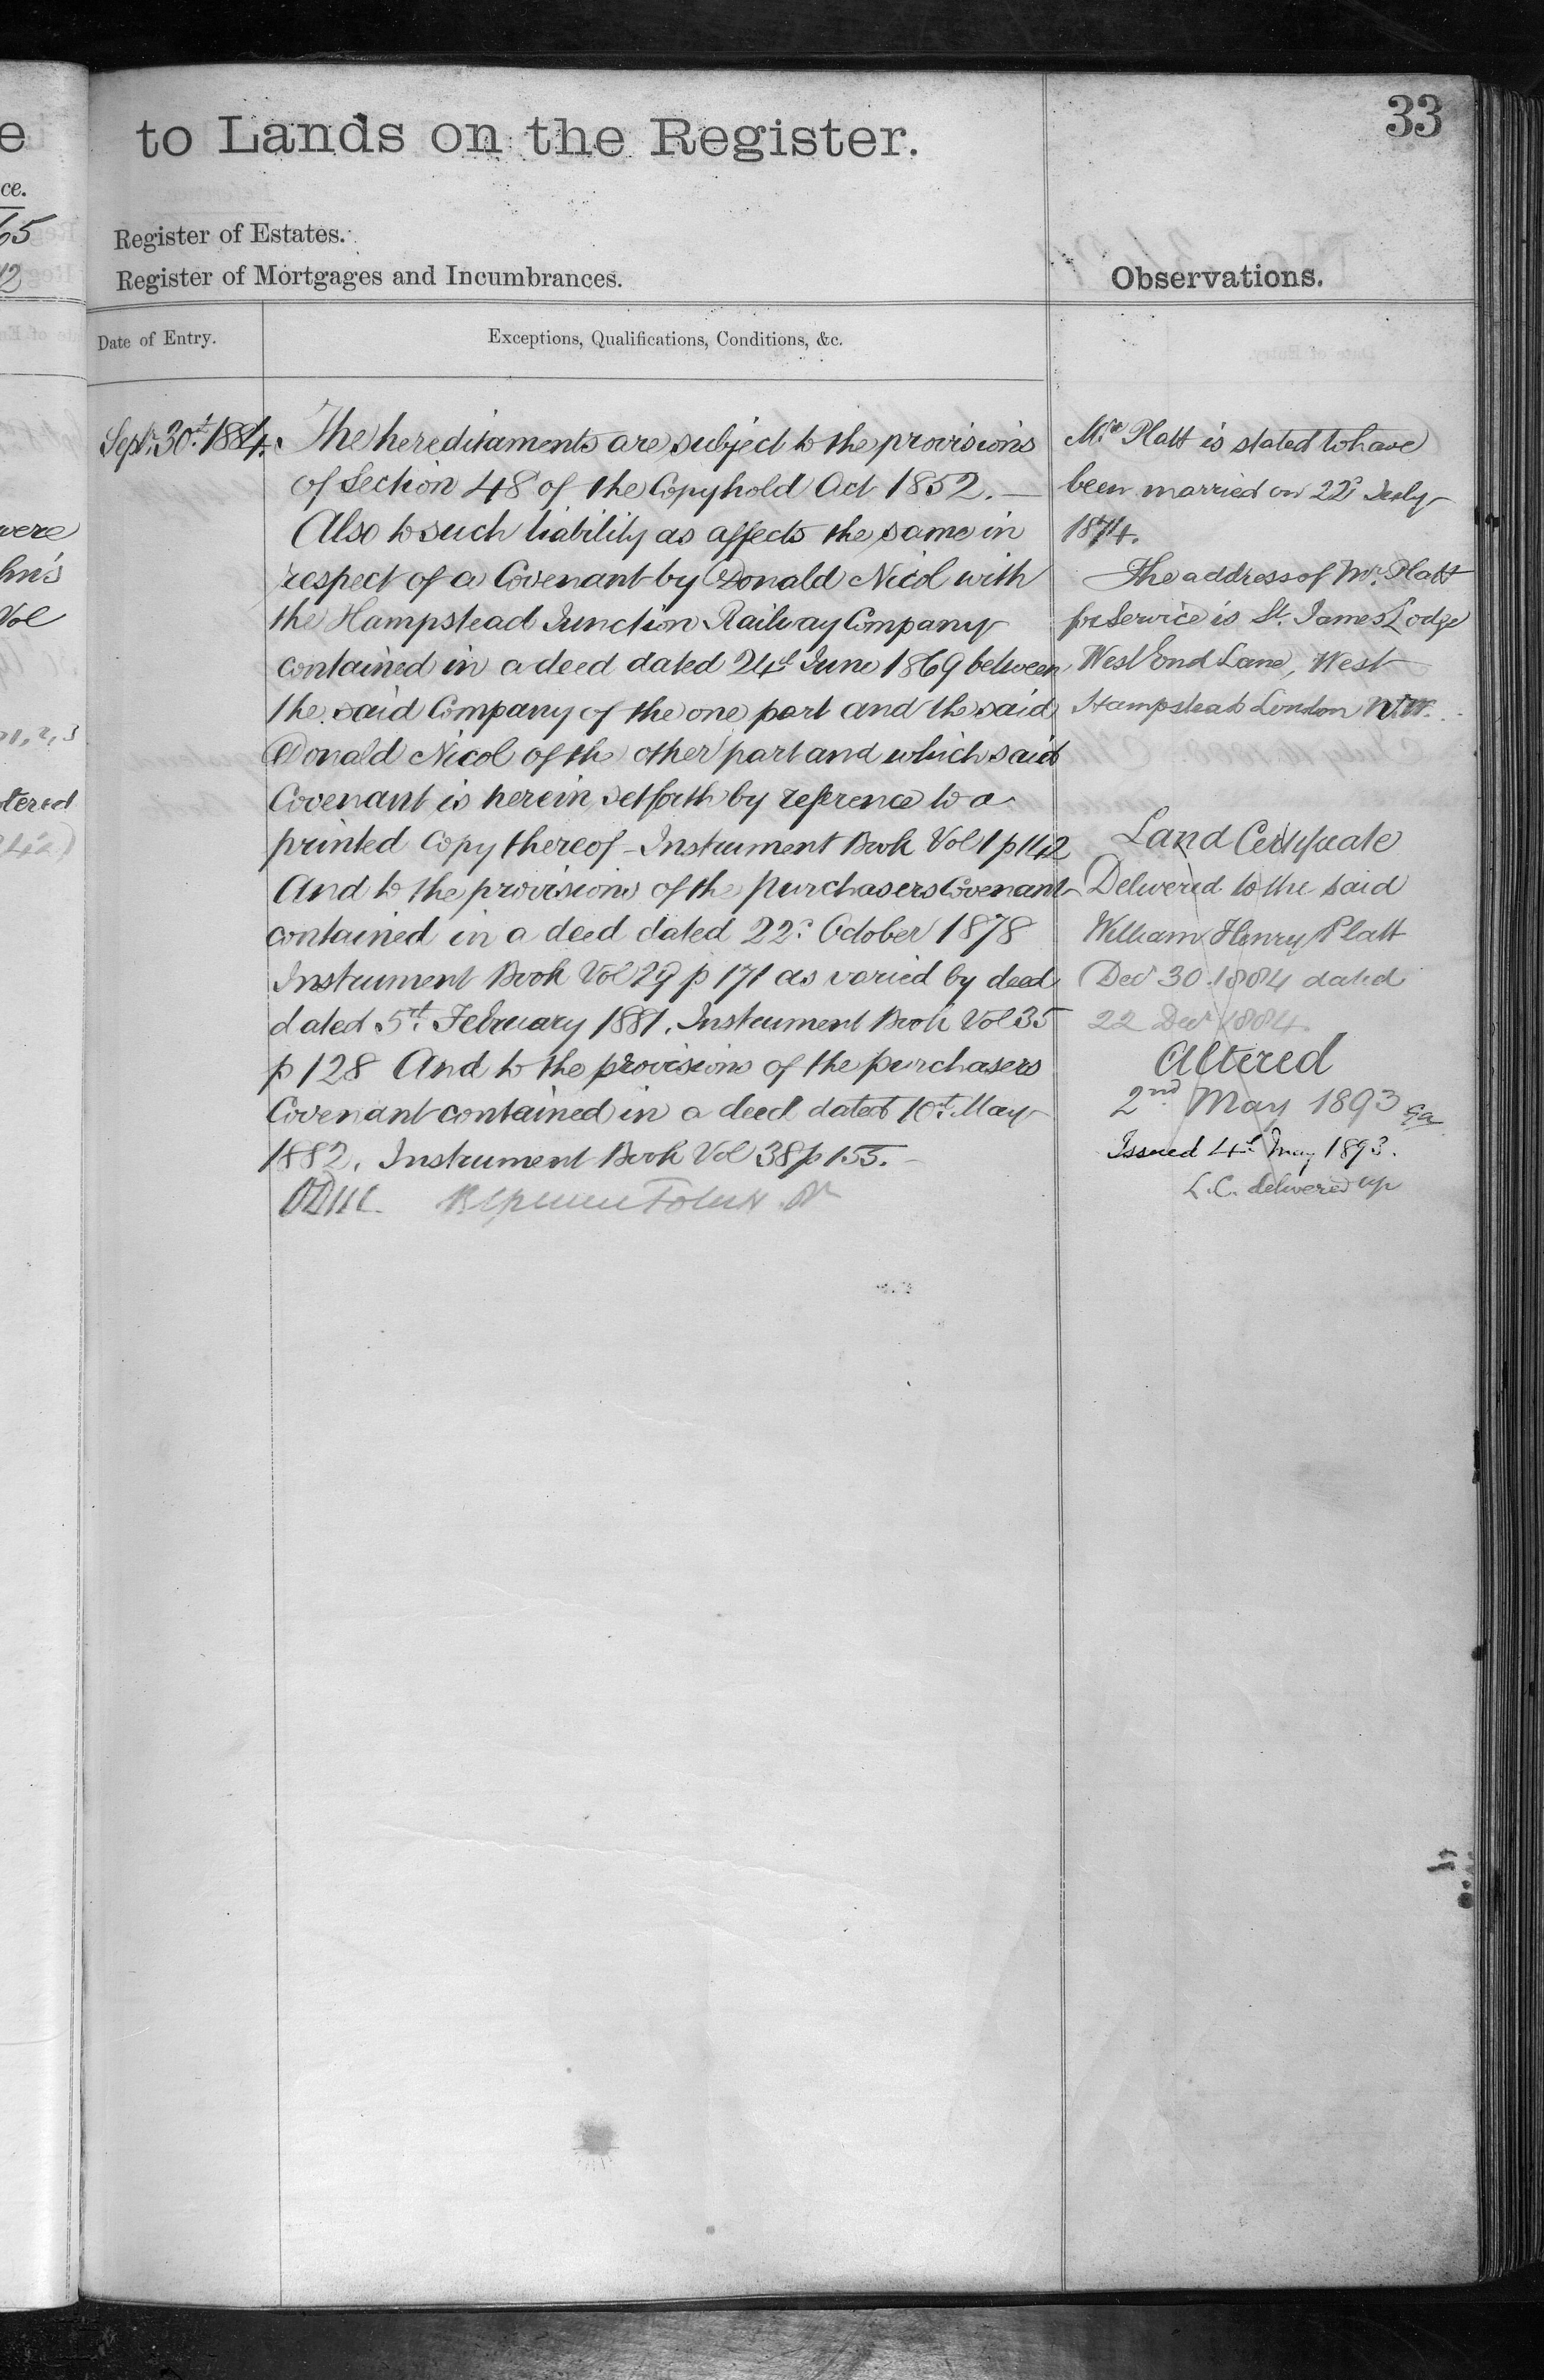 33
to Lands on the Register.
Register of Estates.
Register of Mortgages and Incumbrances.
Observations.
Date of Entry.
Exceptions, Qualifications, Conditions, &c.
Sept. 30th 1884.
The hereditaments are subject to the provisions
of Section 48 of the Copyhold Act 1852. —
Also to such liability as affects the same in
respect of a Covenant by Donald Nicol with
the Hampstead Junction Railway Company
contained in a deed dated 24th June 1869 between
the said Company of the one part and the said
Donald Nicol of the other part and which said
Covenant is herein set forth by reference to a
printed Copy thereof - Instrument Book Vol 1 p 142
And to the provisions of the purchasers Covenant
contained in a deed dated 22d October 1878
Instrument Book Vol 29 p 171 as varied by deed
dated 5th February 1881. Instrument Book Vol 35
p 128 And to the provisions of the purchasers
Covenant contained in a deed dated 10th May
1882. Instrument Book Vol 38 p 155. -
Mrs Platt is stated to have
been married on 22d July
1874.
The address of Mr. Platt
for Service is St. James Lodge
West End Lane, West
Hampstead London N.W.
Land Certificate
Delivered to the said
William Henry Platt
Dec 30. 1884 dated
22 Decr 1884.
Altered
2nd May 1893
Issued 4th May 1893.
L.C. delivered up
were
Vol
tered